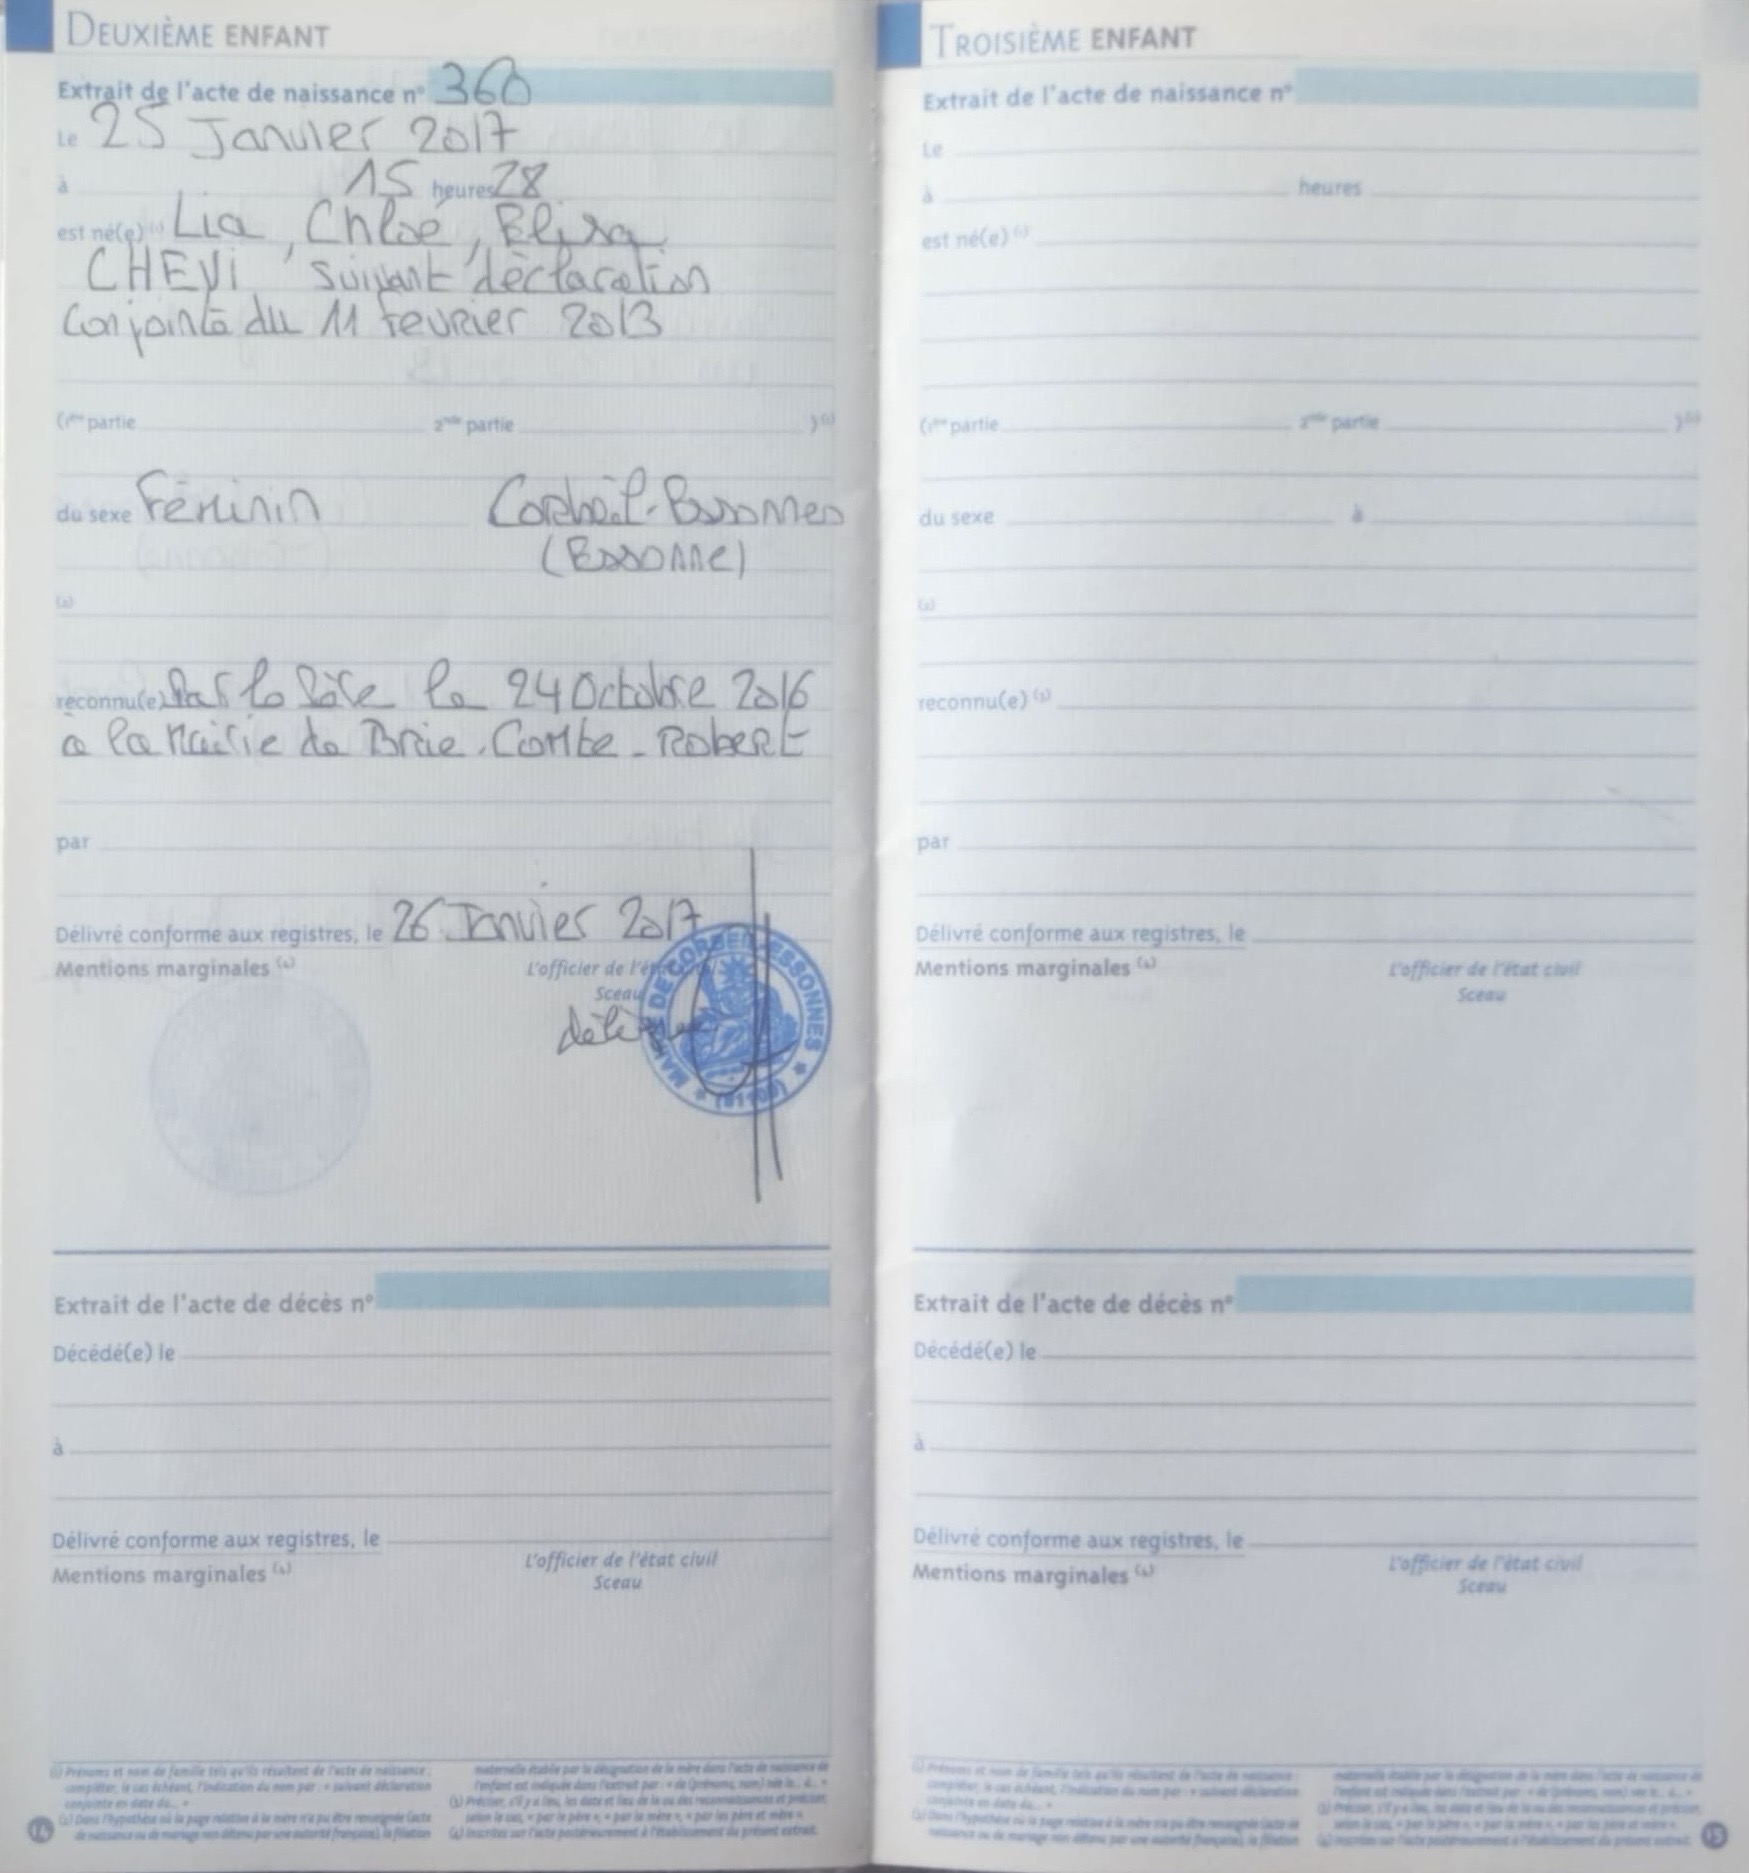 DEUXIÈME ENFANT
Extrait de l'acte de naissance n° 360
Le 25 Janvier 2017
à 15 heures 28
est né(e) (1) Lia, Chloé, Elisa
CHEVI, suivant déclaration
Conjointe du 11 fevrier 2013
(1ère partie 2nde partie )(1)
du sexe Féminin Corbeil-Essonnes
(Essonne)
(2)
reconnu(e) Par le Père le 24 Octobre 2016
a la Mairie de Brie-Comte-Robert
par
Délivré conforme aux registres, le 26 Janvier 2017
Mentions marginales (4)
L'officier de l'état civil
Sceau
MAIRIE DE CORBEIL-ESSONNES
(91100)
Extrait de l'acte de décès n°
Décédé(e) le
à
Délivré conforme aux registres, le
Mentions marginales (4)
L'officier de l'état civil
Sceau
(1) Prénoms et nom de famille tels qu'ils résultent de l'acte de naissance ;
compléter, le cas échéant, l'indication du nom par : « suivant déclaration
conjointe en date du... »
(2) Dans l'hypothèse où la page relative à la mère n'a pu être renseignée (acte
de naissance ou de mariage non détenu par une autorité française), la filiation
maternelle établie par la désignation de la mère dans l'acte de naissance de
l'enfant est indiquée dans l'extrait par : « de (prénoms, nom) née le... à... »
(3) Préciser, s'il y a lieu, les date et lieu de la ou des reconnaissances et préciser
selon le cas, « par le père », « par la mère », « par les père et mère ».
(4) Inscrites sur l'acte postérieurement à l'établissement du présent extrait.
14
TROISIÈME ENFANT
Extrait de l'acte de naissance n°
Le
à heures
est né(e) (1)
(1ère partie 2nde partie )(1)
du sexe à
(2)
reconnu(e) (3)
par
Délivré conforme aux registres, le
Mentions marginales (4)
L'officier de l'état civil
Sceau
Extrait de l'acte de décès n°
Décédé(e) le
à
Délivré conforme aux registres, le
Mentions marginales (4)
L'officier de l'état civil
Sceau
(1) Prénoms et nom de famille tels qu'ils résultent de l'acte de naissance ;
compléter, le cas échéant, l'indication du nom par : « suivant déclaration
conjointe en date du... »
(2) Dans l'hypothèse où la page relative à la mère n'a pu être renseignée (acte de
naissance ou de mariage non détenu par une autorité française), la filiation
maternelle établie par la désignation de la mère dans l'acte de naissance de
l'enfant est indiquée dans l'extrait par : « de (prénoms, nom) née le... à... »
(3) Préciser, s'il y a lieu, les date et lieu de la ou des reconnaissances et préciser,
selon le cas, « par le père », « par la mère », « par les père et mère ».
(4) Inscrites sur l'acte postérieurement à l'établissement du présent extrait.
15